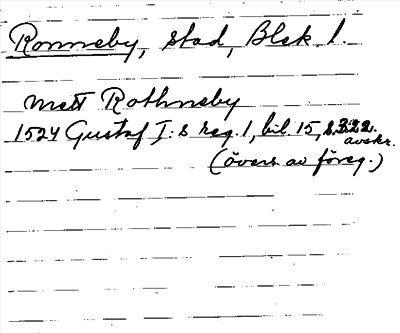 Ronneby, stad, Blek. l.
mett Rothneby
1524 Gustaf I:s reg. 1, bil. 15, s. 322.
avskr.
(övers. av föreg.)